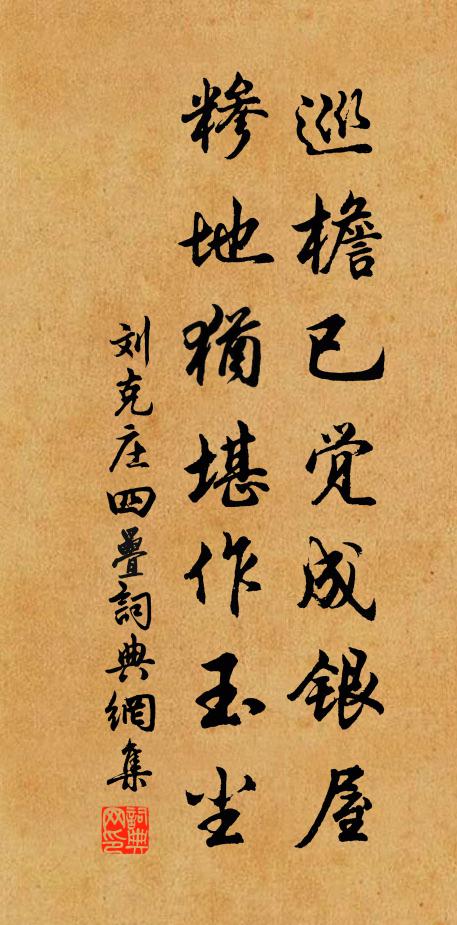 巡檐已觉成银屋
糁地犹堪作玉尘
刘克庄四叠词典网集
词典网印